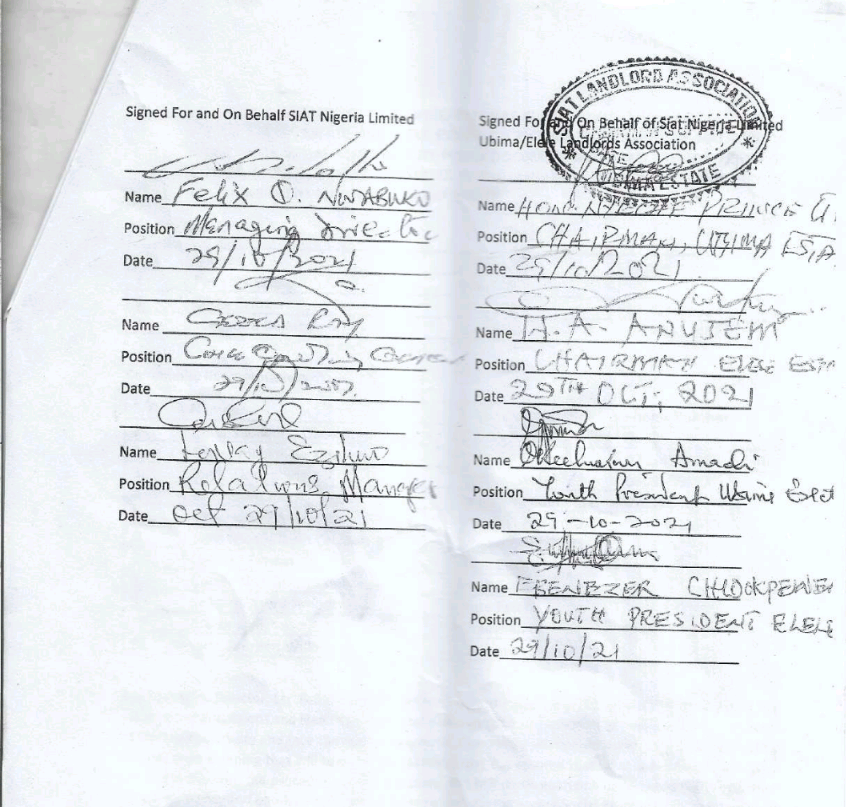 Signed For and On Behalf SIAT Nigeria Limited
Name Felix O. NWABUKO
Position Managing Director
Date 29/10/2021
Name
Position
Date 29/10/2021
Name Ezihuo
Position Relations Manager
Date Oct 29/10/21
SIAT LANDLORD ASSOCIATION
UBIMA ESTATE
Signed For and On Behalf of Siat Nigeria Limited
Ubima/Elele Landlords Association
Name HON. PRINCE U.
Position CHAIRMAN, UBIMA ESTA
Date 29/10/2021
Name H.A. ANUJEM
Position CHAIRMAN ELELE ESTA
Date 29TH OCT, 2021
Name Amadi
Position Youth President Ubima Estat
Date 29-10-2021
Name EBENEZER
Position YOUTH PRESIDENT ELELE
Date 29/10/21